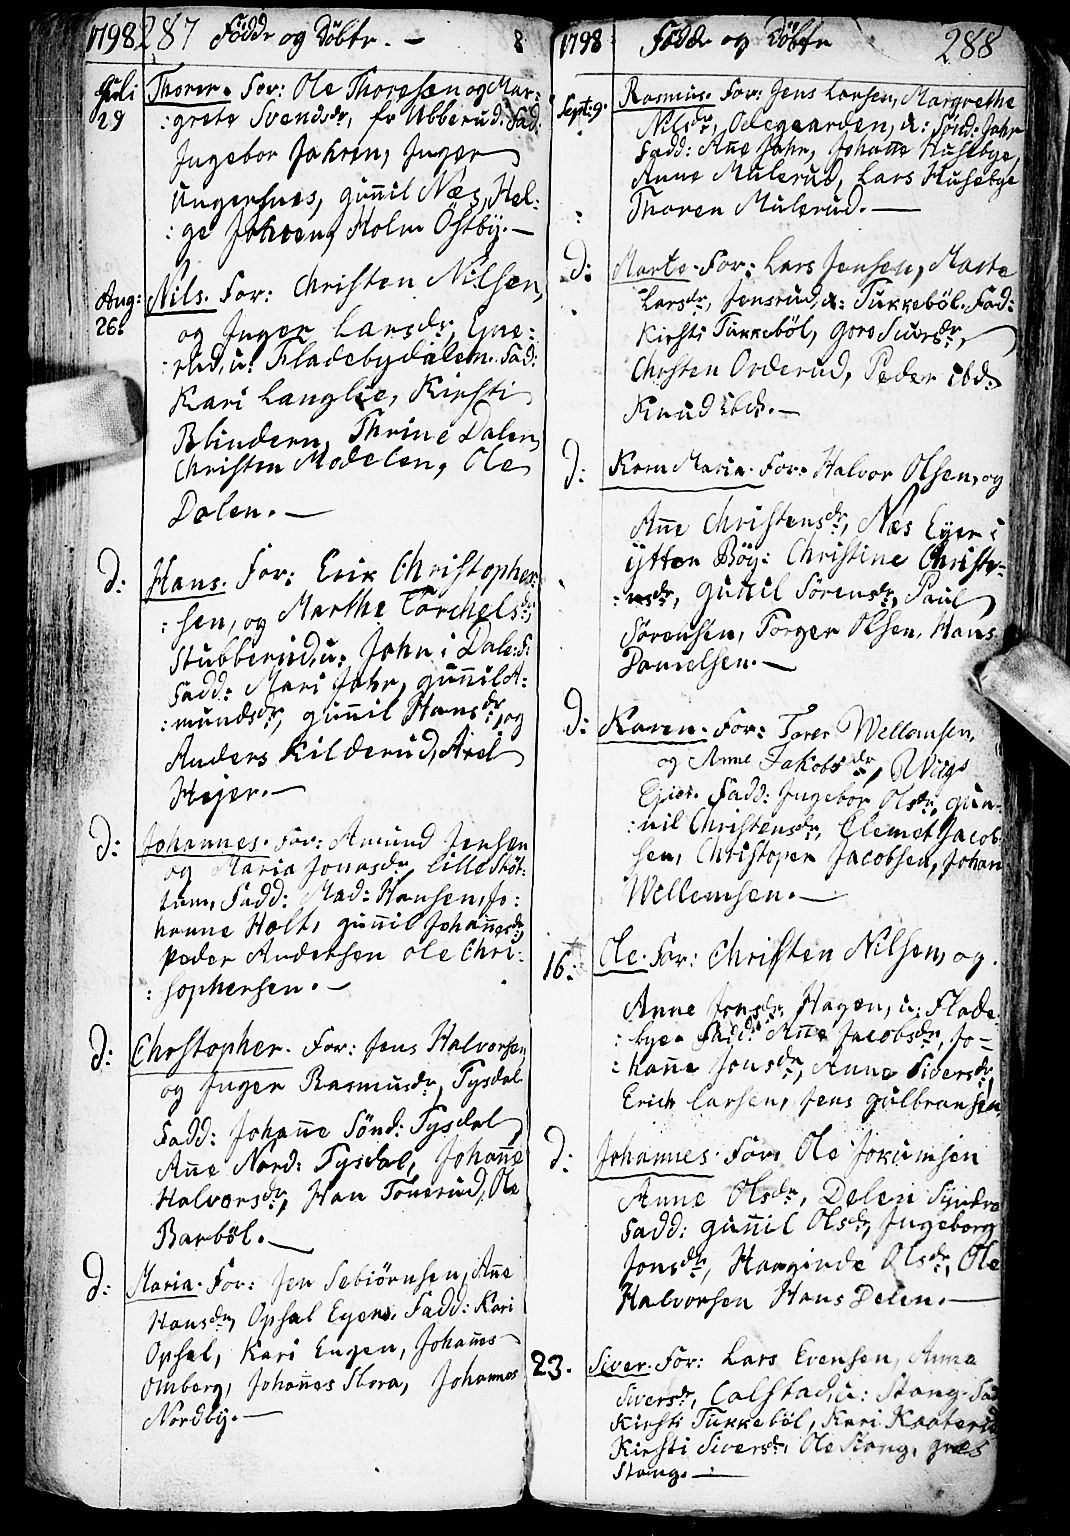 1798 287 Födde og Döbte. - 8
Juli Thorer. For: Ole Thoresen og Mar:
29 :grete Svendsdr, fr Ubberud. Fad:
Ingebor Jahren, Inger
Ungersnes, gunil Næs, Hel:
:ge Jahren, Holm Östby. -
Aug: Nils. For: Christen Nilsen,
26. og Inger Larsdr, Eyne:
:rud, u: Fladebydalen. Fad:
Kari Langlie, Kirsti
Blindern, Thrine Dalen,
Christen Modelen, Ole
Dalen. -
D: Hans. For: Erik Christopher:
:sen, og Marthe Torchelsdr,
Stubberud, u: John i Dale:
Fadd: Mari Jahr, gunil A:
:mundsdr, gunil Hansdr, og
Anders Kilderud, Axel
Hejer. -
D: Johannes. For: Amund Jensen
og Maria Jonasdr, Lille Stöt:
tum, Fadd: Mad: Hansen, Jo:
hanne Holt, gunil Johannesdr,
Peder Andersen Ole Chri:
:sophersen. -
D: Christopher. For: Jens Halvorsen,
og Inger Rasmusdr, Tysdal
Fadd: Johanne Sönd: Tysdal,
Anne Nord: Tysdal, Johanne
Halvorsdr, Han Tonerud, Ole
Barböl. -
D: Maria. For: Jen Sebiörnsen, Anne
Hansdr, Opsal Eyer. Fadd: Kari
Opsal, Kari Engen, Johannes
Omberg, Johannes Slora, Johannes
Nordby. -
1798 Födde og Döbte 288
Sept: 9. Rasmus. For: Jens Larsen, Margrethe
Nilsdr, Odegaarden, u: Sönd: Jahr
Fadd: Anne Jahr, Johanne Husebye,
Anne Mulerud, Lars Husebye
Thoren Mulerud. -
D: Marte. For: Lars Jensen, Marte
Larsdr, Jensrud, u: Tukkeböl. Fad:
Kirsti Tukkeböl, Goro Siversdr,
Christen Orderud, Peder ibd:
Knud ibd:. -
D: Karn Maria. For: Halvor Olsen, og
Anne Christensdr, Næs Eyer i
ytter Böy: Christine Christe-
:nsdr, gunil Sörensdr, Paul
Sörensen, Torger Olsen, Hans
Danielsen. -
D: Karen. For: Torer Wellomsen,
og Anne Jakobsdr,
Eyer. Fadd: Ingebor Olsdr, gun-
:nil Christensdr, Clemet Jacob-
sen, Christoper Jacobsen, Johan
Wellemsen. -
16: Ole. For: Christen Nilsen, og
Anne Jonsdr, Hagen, u: Flade
:bye. Fadd: Anne Jacobsdr, Jo-
:hanne Jonsdr, Anne Siversdr,
Erich Larsen, Jens gulbransen
D: Johannes. For: Ole Jokumsen
Anne Olsdr, Delen Syndre
Fadd: gunil Olsdr, Ingeborg
Jonsdr, Haaginde Olsdr, Ole
Halvorsen Hans Delen. -
23. Siver. For: Lars Evensen, Anne
Siversdr, Calstad, u: Stang. Fad
Kirsti Tukkeböl, Kari Kaaterud
Kirsti Siversdr, Ole Stang, græs
Stang. -